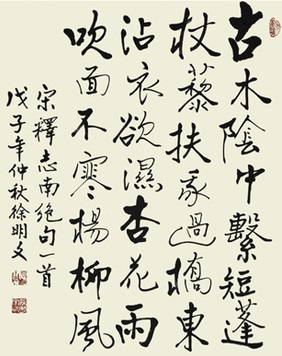 古木陰中繫短蓬
杖藜扶我過橋東
沾衣欲濕杏花雨
吹面不寒楊柳風
宋釋志南絕句一首
戊子年仲秋徐明文